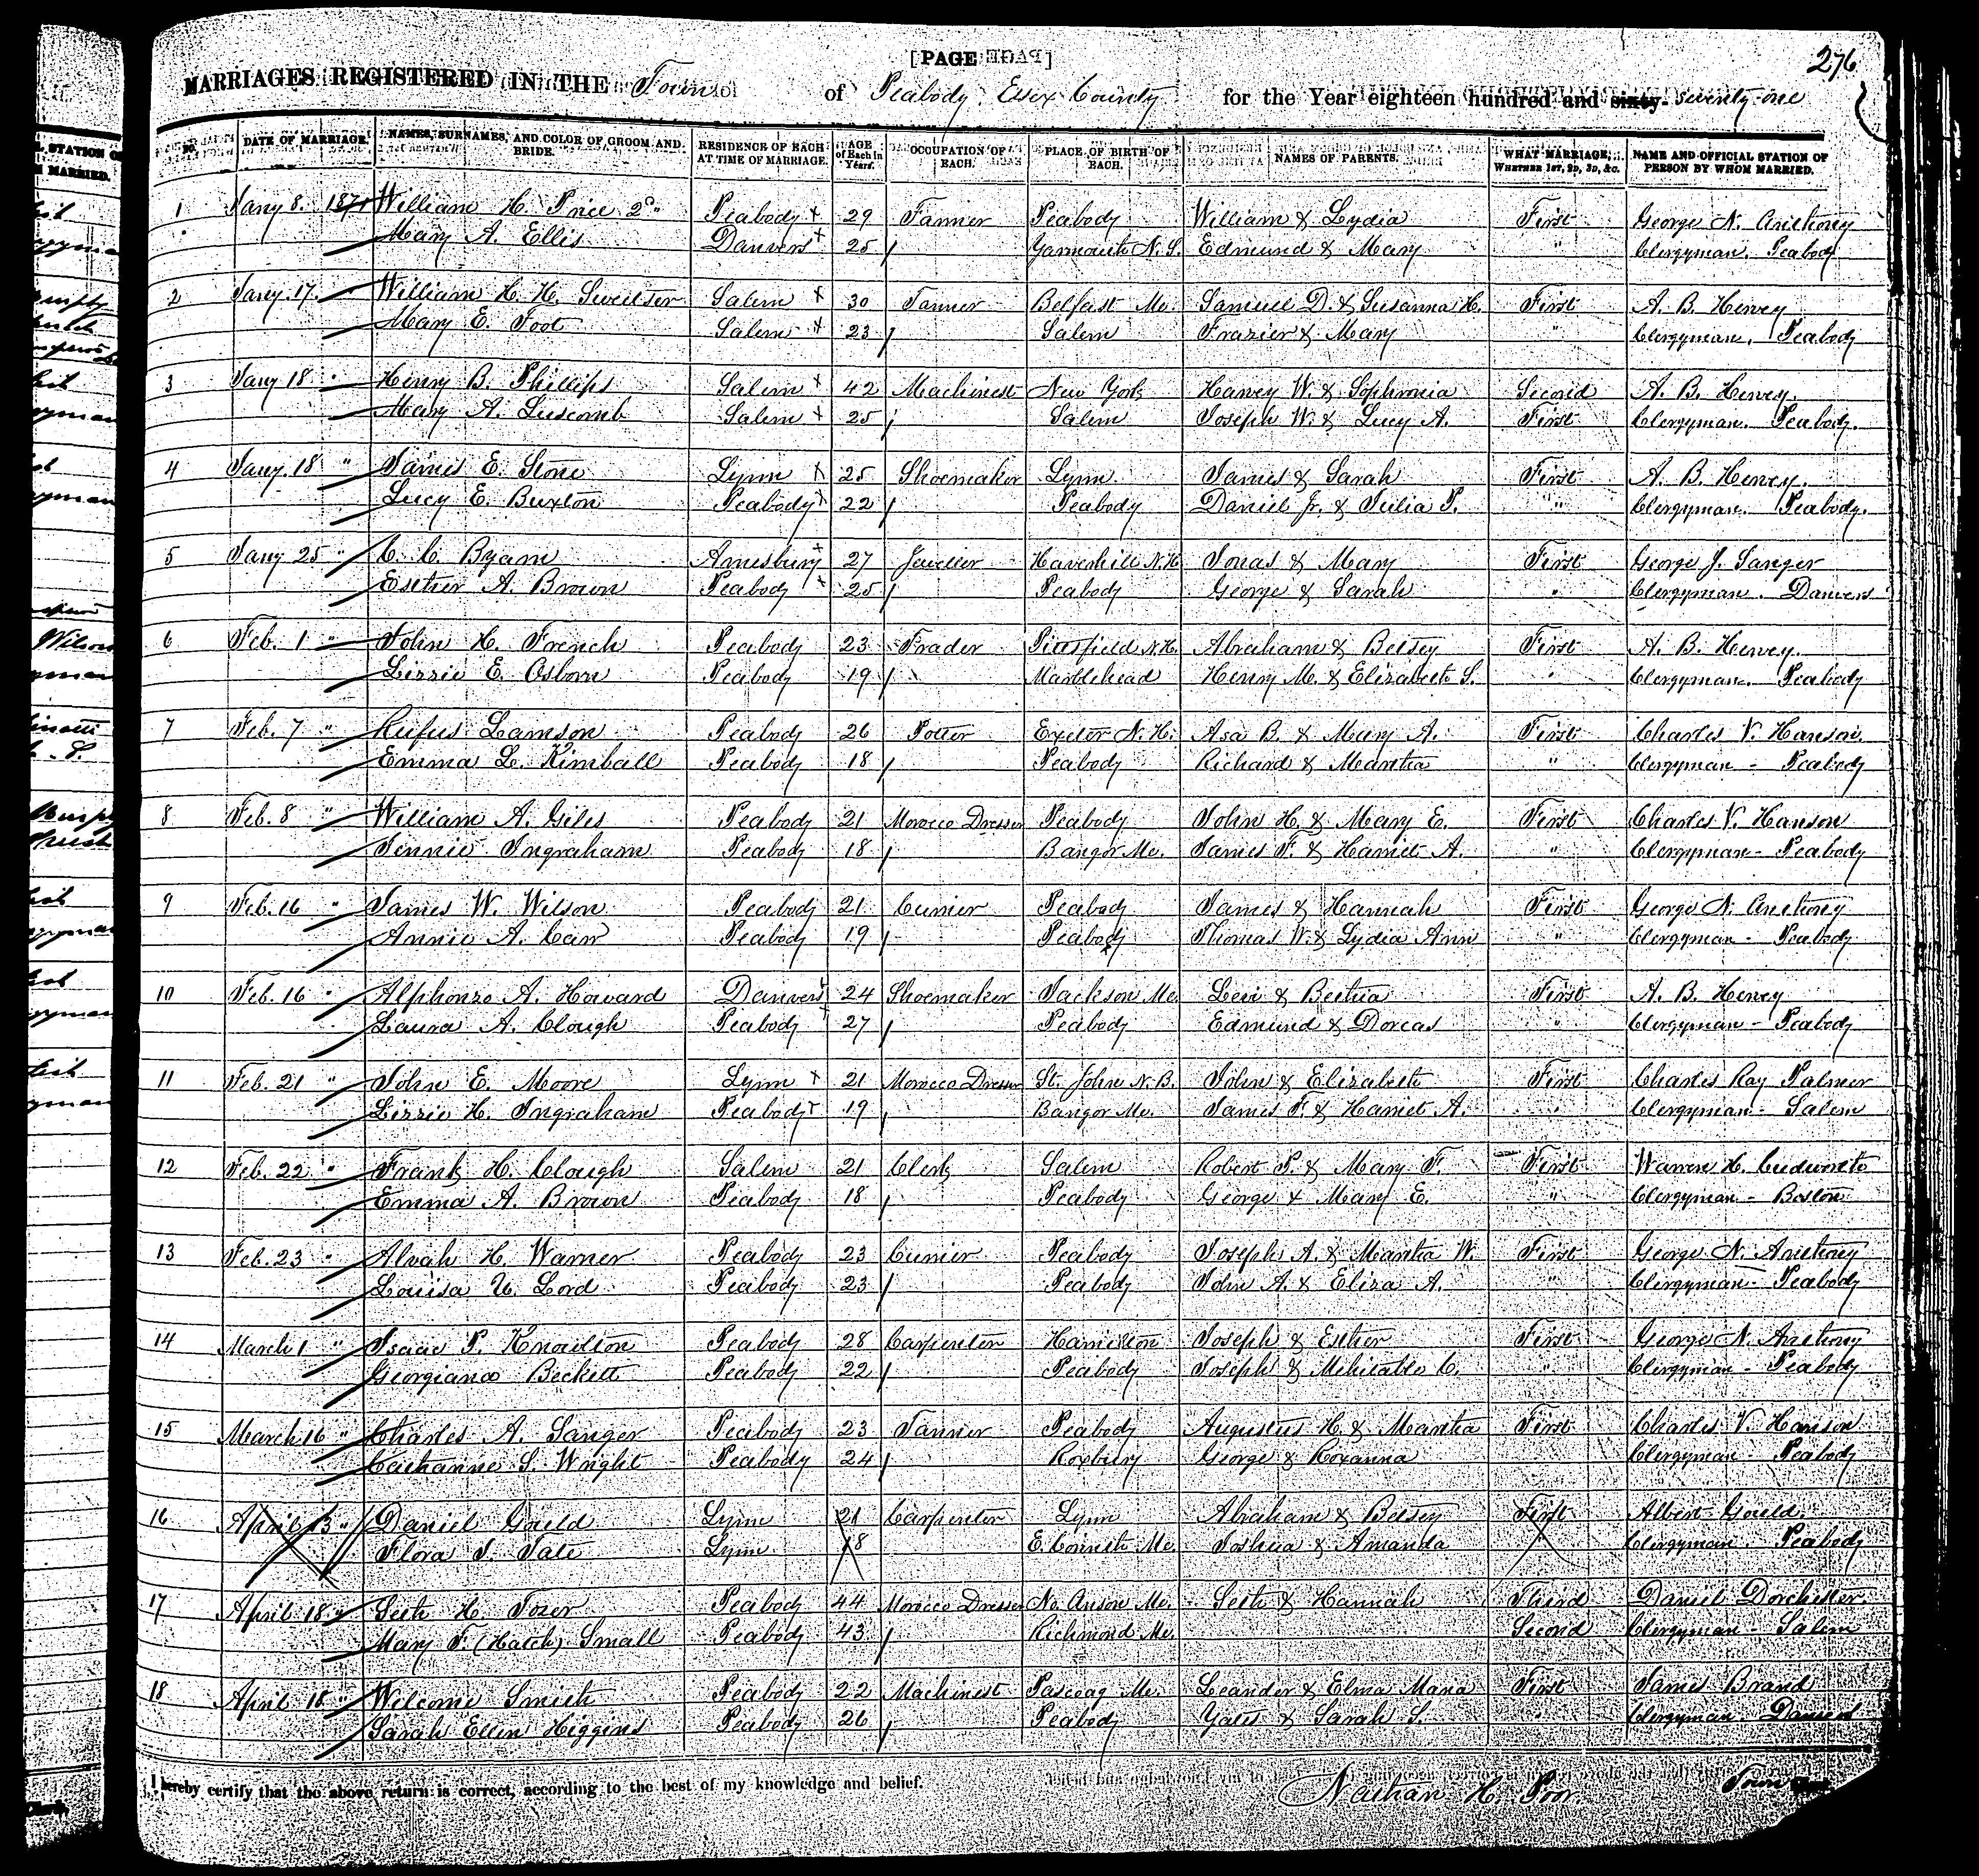 [PAGE ]
276
MARRIAGES REGISTERED IN THE Town of Peabody, Essex County for the Year eighteen hundred and sixty seventy-one
No. DATE OF MARRIAGE. NAMES, SURNAMES, AND COLOR OF GROOM AND BRIDE. RESIDENCE OF EACH AT TIME OF MARRIAGE. AGE of Each in Years. OCCUPATION OF EACH. PLACE OF BIRTH OF EACH. NAMES OF PARENTS. WHAT MARRIAGE, WHETHER 1ST, 2D, 3D, &C. NAME AND OFFICIAL STATION OF PERSON BY WHOM MARRIED.
1 Jany 8. 1871 William H. Price 2d " Peabody + 29 Tanner Peabody William & Lydia First George N. Anthony
Mary A. Ellis Danvers + 25 / Yarmouth N.S. Edmund & Mary " Clergyman. Peabody
2 Jany. 17. " William H. H. Sweetser Salem + 30 Tanner Belfast Me. Samuel D. & Susanna H. First A. B. Hervey
Mary E. Foot Salem + 23 / Salem Frazier & Mary " Clergyman. Peabody
3 Jany 18 " Henry B. Phillips Salem + 42 Machinest New York Harvey W. & Sophronia Second A. B. Hervey.
Mary A. Luscomb Salem + 25 / Salem Joseph W. & Lucy A. First Clergyman. Peabody.
4 Jany. 18 " James E. Stone Lynn + 25 Shoemaker Lynn James & Sarah First A. B. Hervey.
Lucy E. Buxton Peabody + 22 / Peabody Daniel Jr. & Julia P. " Clergyman. Peabody.
5 Jany 25 " C. C. Byam Amesbury + 27 Jeweler Haverhill N.H. Jonas & Mary First George J. Sanger
Esther A. Brown Peabody + 25 / Peabody George & Sarah " Clergyman. Danvers
6 Feb. 1 " John H. French Peabody 23 Trader Pittsfield N.H. Abraham & Betsey First A. B. Hervey.
Lizzie E. Osborn Peabody 19 / Marblehead Henry M. & Elizabeth S. " Clergyman. Peabody
7 Feb. 7 " Rufus Lamson Peabody 26 Potter Exeter N.H. Asa B. & Mary A. First Charles V. Hanson
Emma L. Kimball Peabody 18 / Peabody Richard & Martha " Clergyman - Peabody
8 Feb. 8 " William A. Giles Peabody 21 Morocco Dresser Peabody John H. & Mary E. First Charles V. Hanson
Jennie Ingraham Peabody 18 / Bangor Me. James F. & Harriet A. " Clergyman - Peabody
9 Feb. 16 " James W. Wilson Peabody 21 Currier Peabody James & Hannah First George N. Anthony
Annie A. Carr Peabody 19 / Peabody Thomas W. & Lydia Ann " Clergyman - Peabody
10 Feb. 16 " Alphonzo A. Howard Danvers + 24 Shoemaker Jackson Me. Levi & Bethia First A. B. Hervey
Laura A. Clough Peabody + 27 / Peabody Edmund & Dorcas " Clergyman - Peabody
11 Feb. 21 " John E. Moore Lynn + 21 Morocco Dresser St. John N.B. John & Elizabeth First Charles Ray Palmer
Lizzie H. Ingraham Peabody + 19 / Bangor Me. James F. & Harriet A. " Clergyman - Salem
12 Feb. 22 " Frank H. Clough Salem 21 Clerk Salem Robert P. & Mary F. First Warren H. Cudworth
Emma A. Brown Peabody 18 / Peabody George & Mary E. " Clergyman - Boston
13 Feb. 23 " Alvah H. Warner Peabody 23 Currier Peabody Joseph A. & Martha W. First George N. Anthony
Louisa U. Lord Peabody 23 / Peabody John A. & Eliza A. " Clergyman - Peabody
14 March 1 " Isaac P. Knowlton Peabody 28 Carpenter Hamilton Joseph & Esther First George N. Anthony
Georgiana Beckett Peabody 22 / Peabody Joseph & Mehitable C. " Clergyman - Peabody
15 March 16 " Charles A. Sanger Peabody 23 Tanner Peabody Augustus H. & Martha First Charles V. Hanson
Catharine S. Wright Peabody 24 / Roxbury George & Roxanna Clergyman - Peabody
16 April 13 " Daniel Gould Lynn 21 Carpenter Lynn Abraham & Betsey First Albert Gould.
Flora J. Tate Lynn 18 E. Corinth Me. Joshua & Amanda Clergyman. Peabody
17 April 18 " Seth H. Tozer Peabody 44 Morocco Dresser No. Anson Me. Seth & Hannah Third Daniel Dorchester
Mary F. (Hatch) Small Peabody 43 / Richmond Me. Second Clergyman - Salem
18 April 18 " Welcome Smith Peabody 22 Machinest Pascoag Me. Leander & Elma Maria First James Brand
Sarah Ellen Higgins Peabody 26 / Peabody Yates & Sarah S. " Clergyman. Danvers
I hereby certify that the above return is correct, according to the best of my knowledge and belief.
Nathan H. Poor. Town